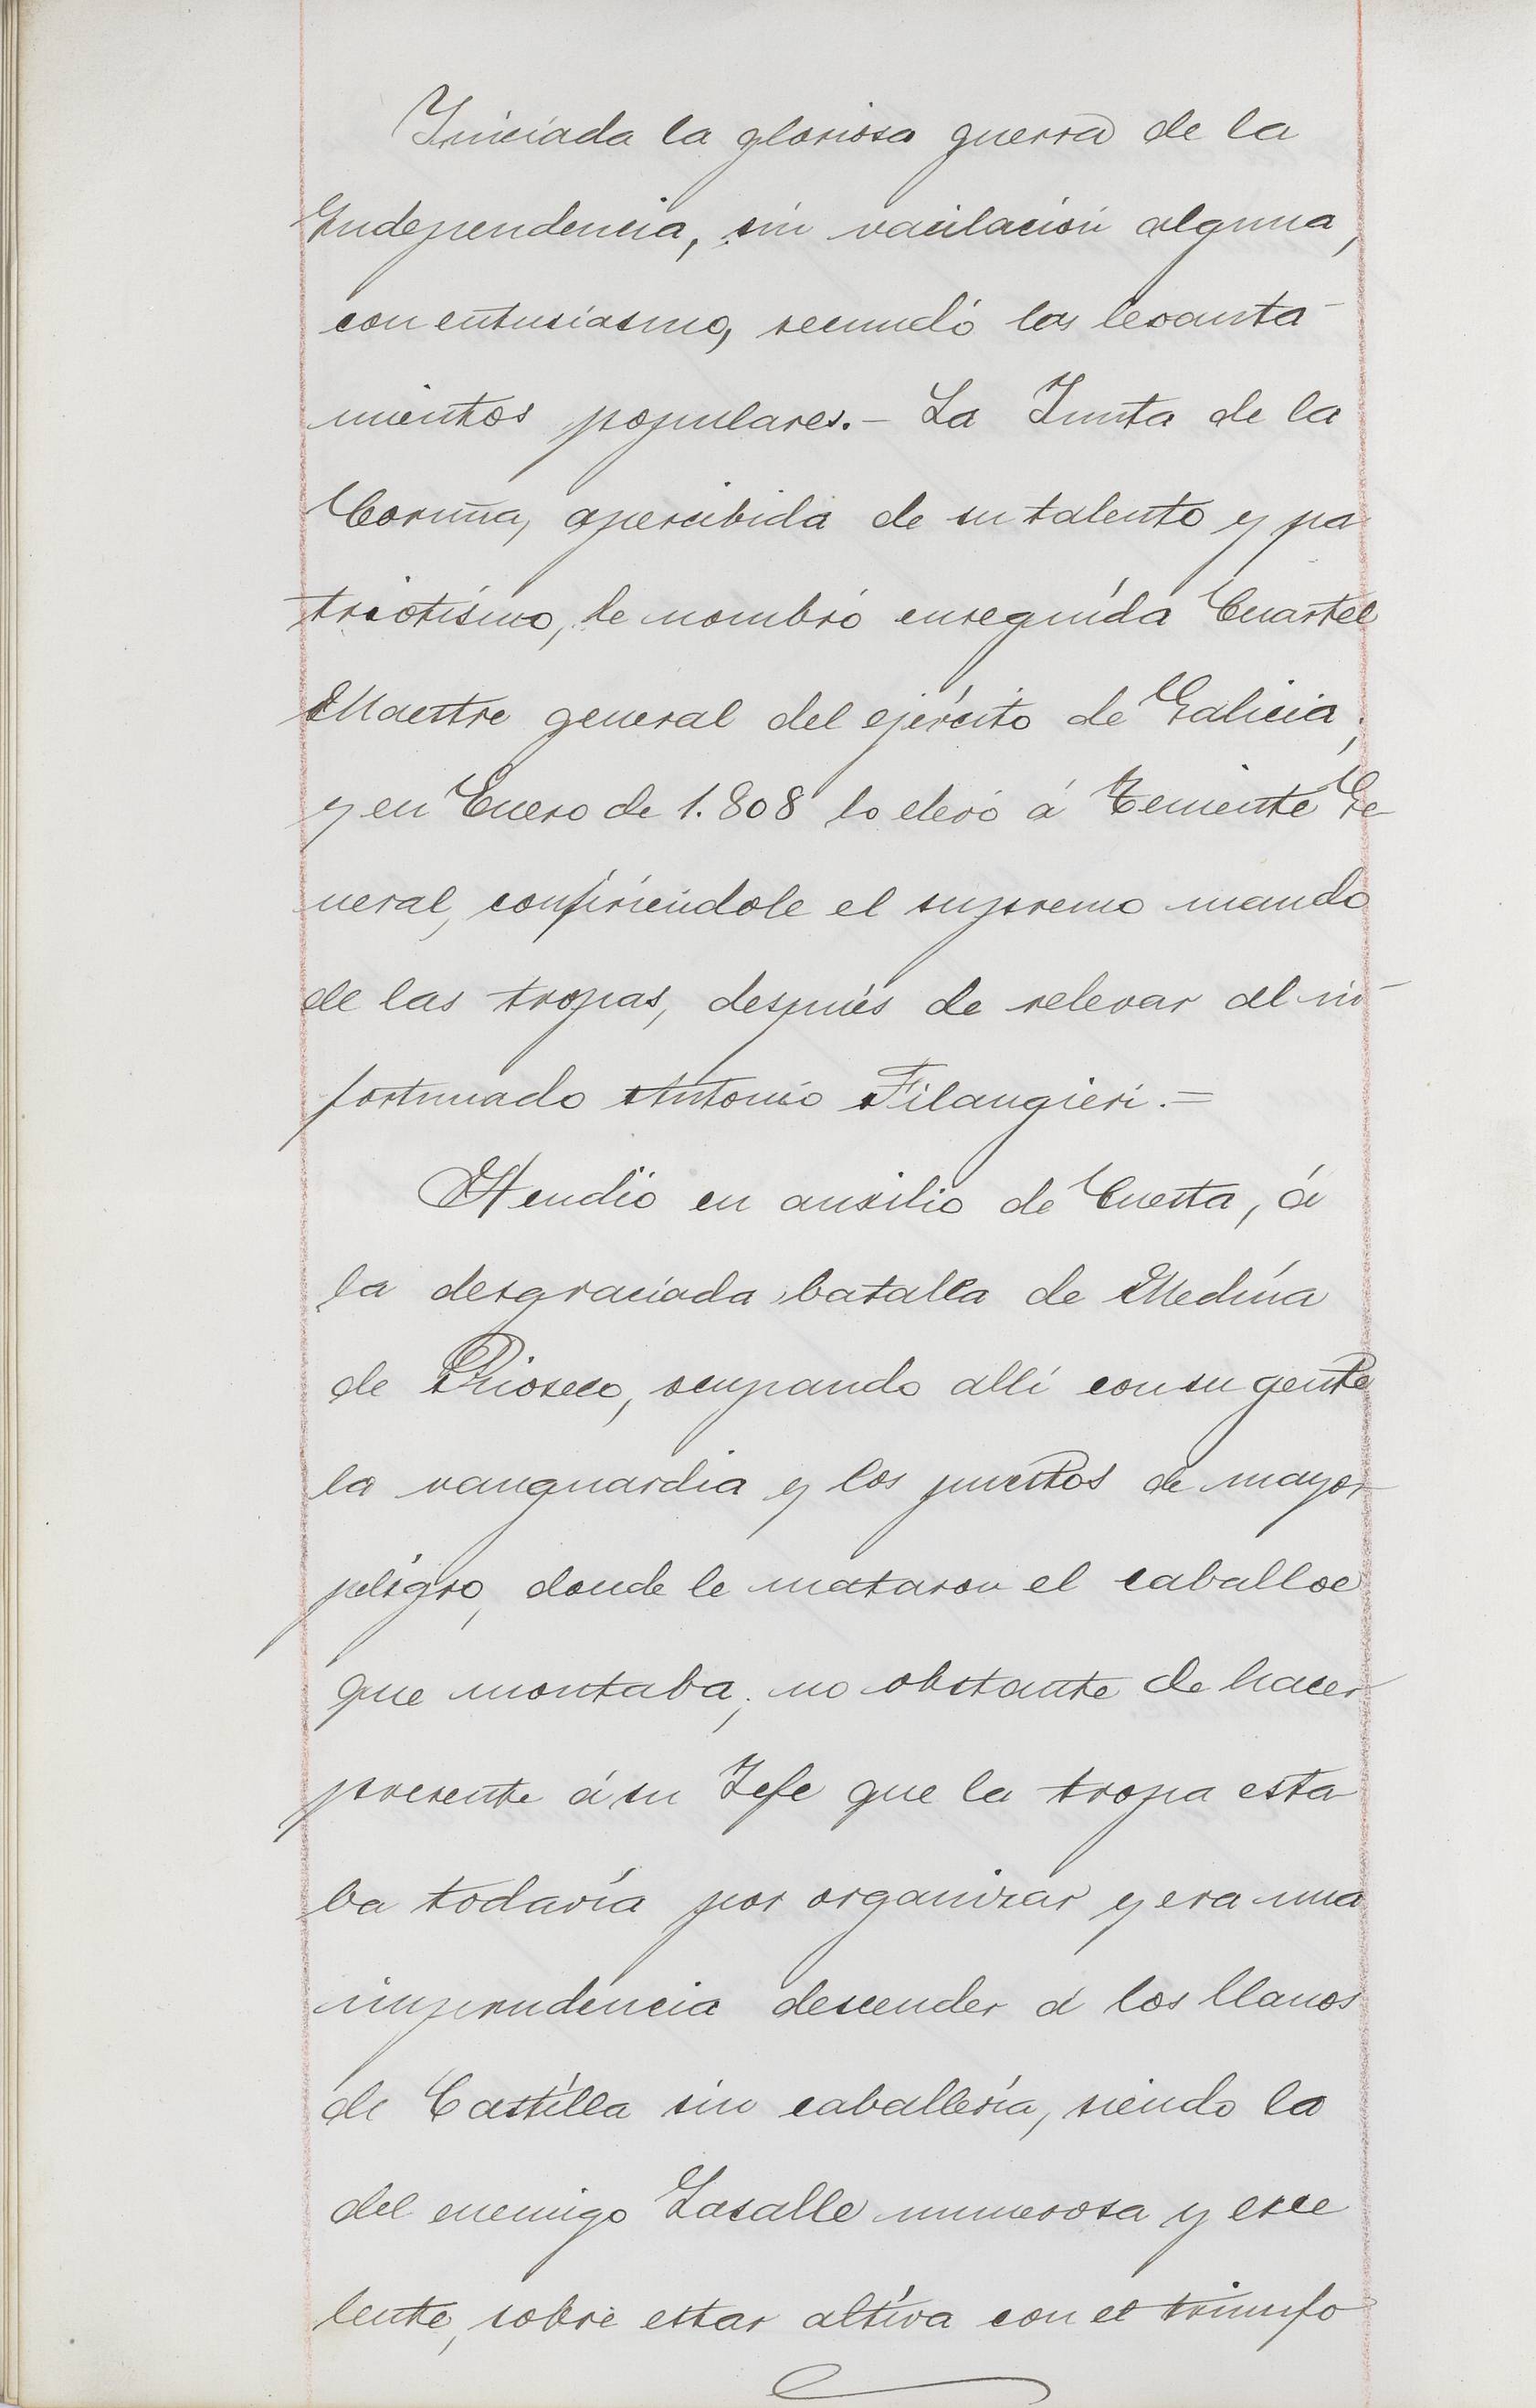 Iniciada la gloriosa guerra de la
Independencia, sin vacilación alguna,
con entusiasmo, secundó los levanta-
mientos populares.- La Junta de la
Coruña, apercibida de su talento y pa
triotismo, le nombró enseguida Cuartel
Maestre general del ejército de Galicia;
y en Enero de 1.808 lo elevó á Teniente Ge
neral, confiriéndole el supremo mando
de las tropas, después de relevar al in-
fortunado Antonio Filangieri.=
Acudió en auxilio de Cuesta, á
la desgraciada batalla de Medina
de Rioseco, ocupando allí con su gente
la vanguardia y los puestos de mayor
peligro, donde le mataron el caballo
que montaba; no obstante de hacer
presente á su Jefe que la tropa esta
ba todavía por organizar y era una
imprudencia descender á los llanos
de Castilla sin caballería, siendo la
del enemigo Lasalle numerosa y exce
lente, sobre estar altiva con el triunfo